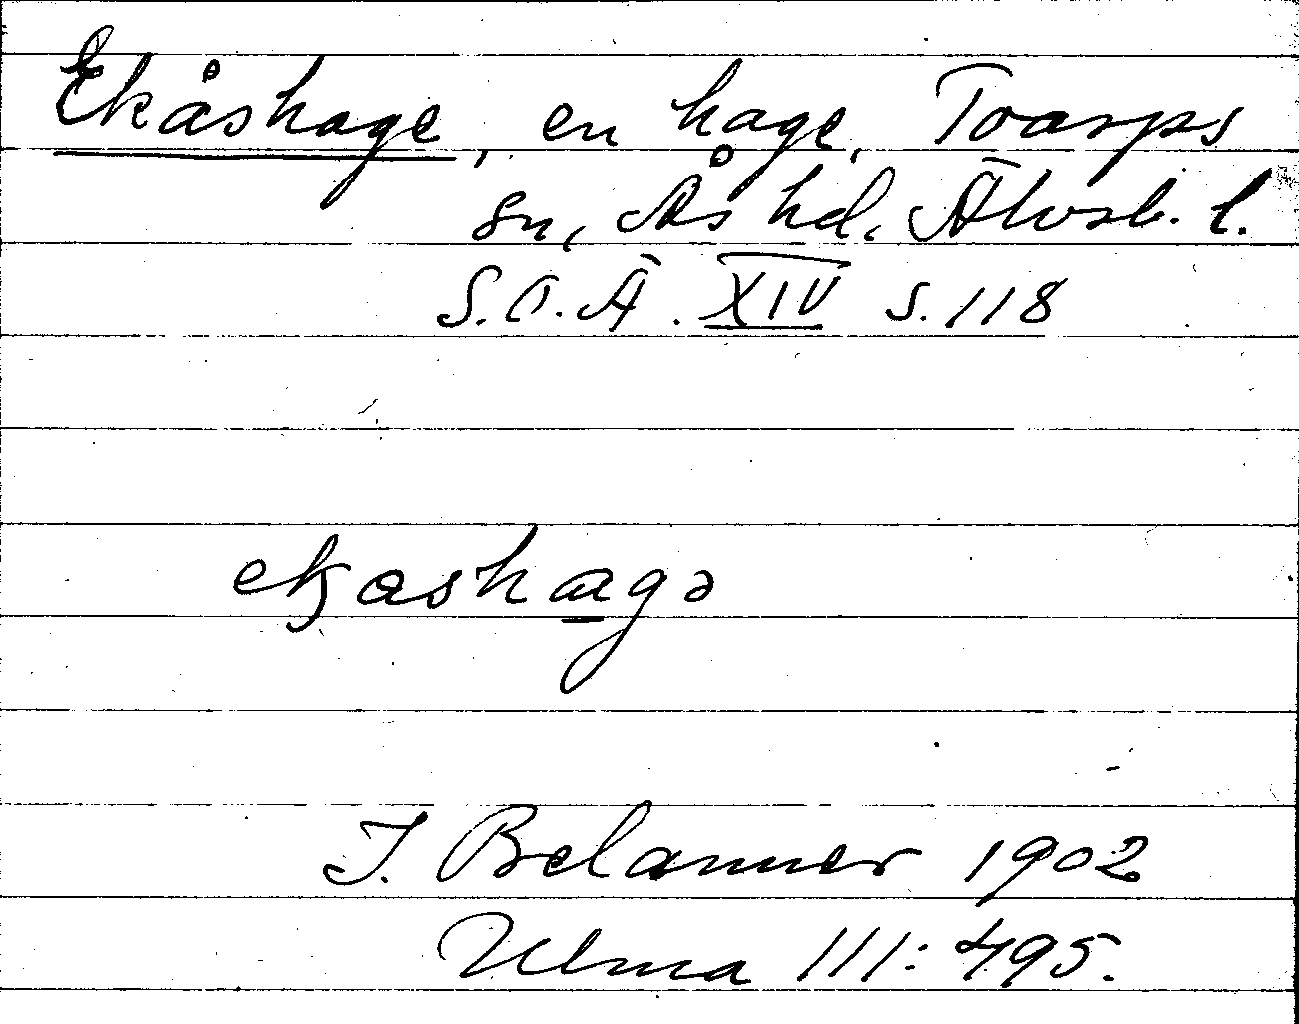 Ekåshage, en hage, Toarps
sn, Ås hd, Älvsb. l.
S.O.Ä. XIV s. 118
ekashagə
J. Belanner 1902
Ulma 111:495.